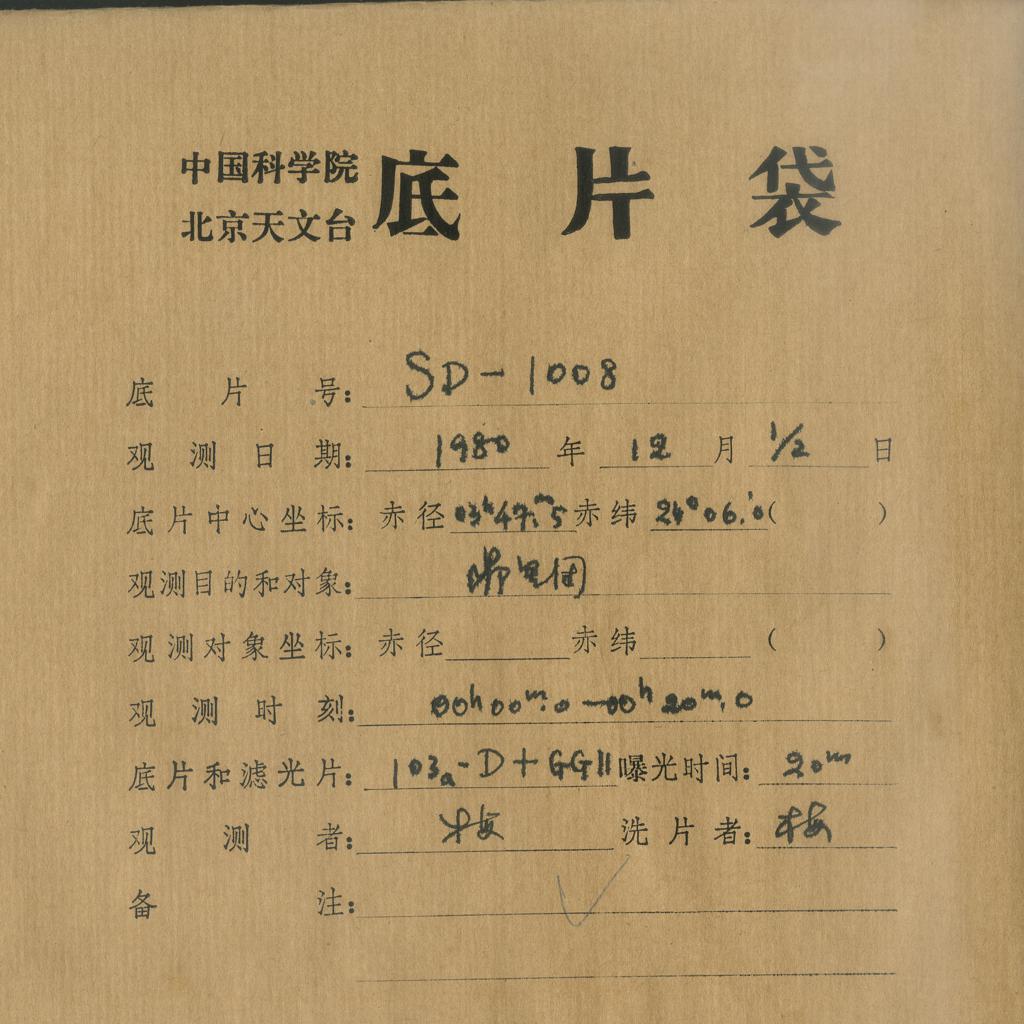 中国科学院
北京天文台
底片袋
底片号: SD-1008
观测日期: 1980 年 12 月 1/2 日
底片中心坐标: 赤径 03ʰ47ᵐ.5 赤纬 24°06'.0 ( )
观测目的和对象: 昴星团
观测对象坐标: 赤径 赤纬 ( )
观测时刻: 00ʰ00ᵐ.0—00ʰ20ᵐ.0
底片和滤光片: 103a-D+GG11 曝光时间: 20ᵐ
观测者: 梅 洗片者: 梅
备注: